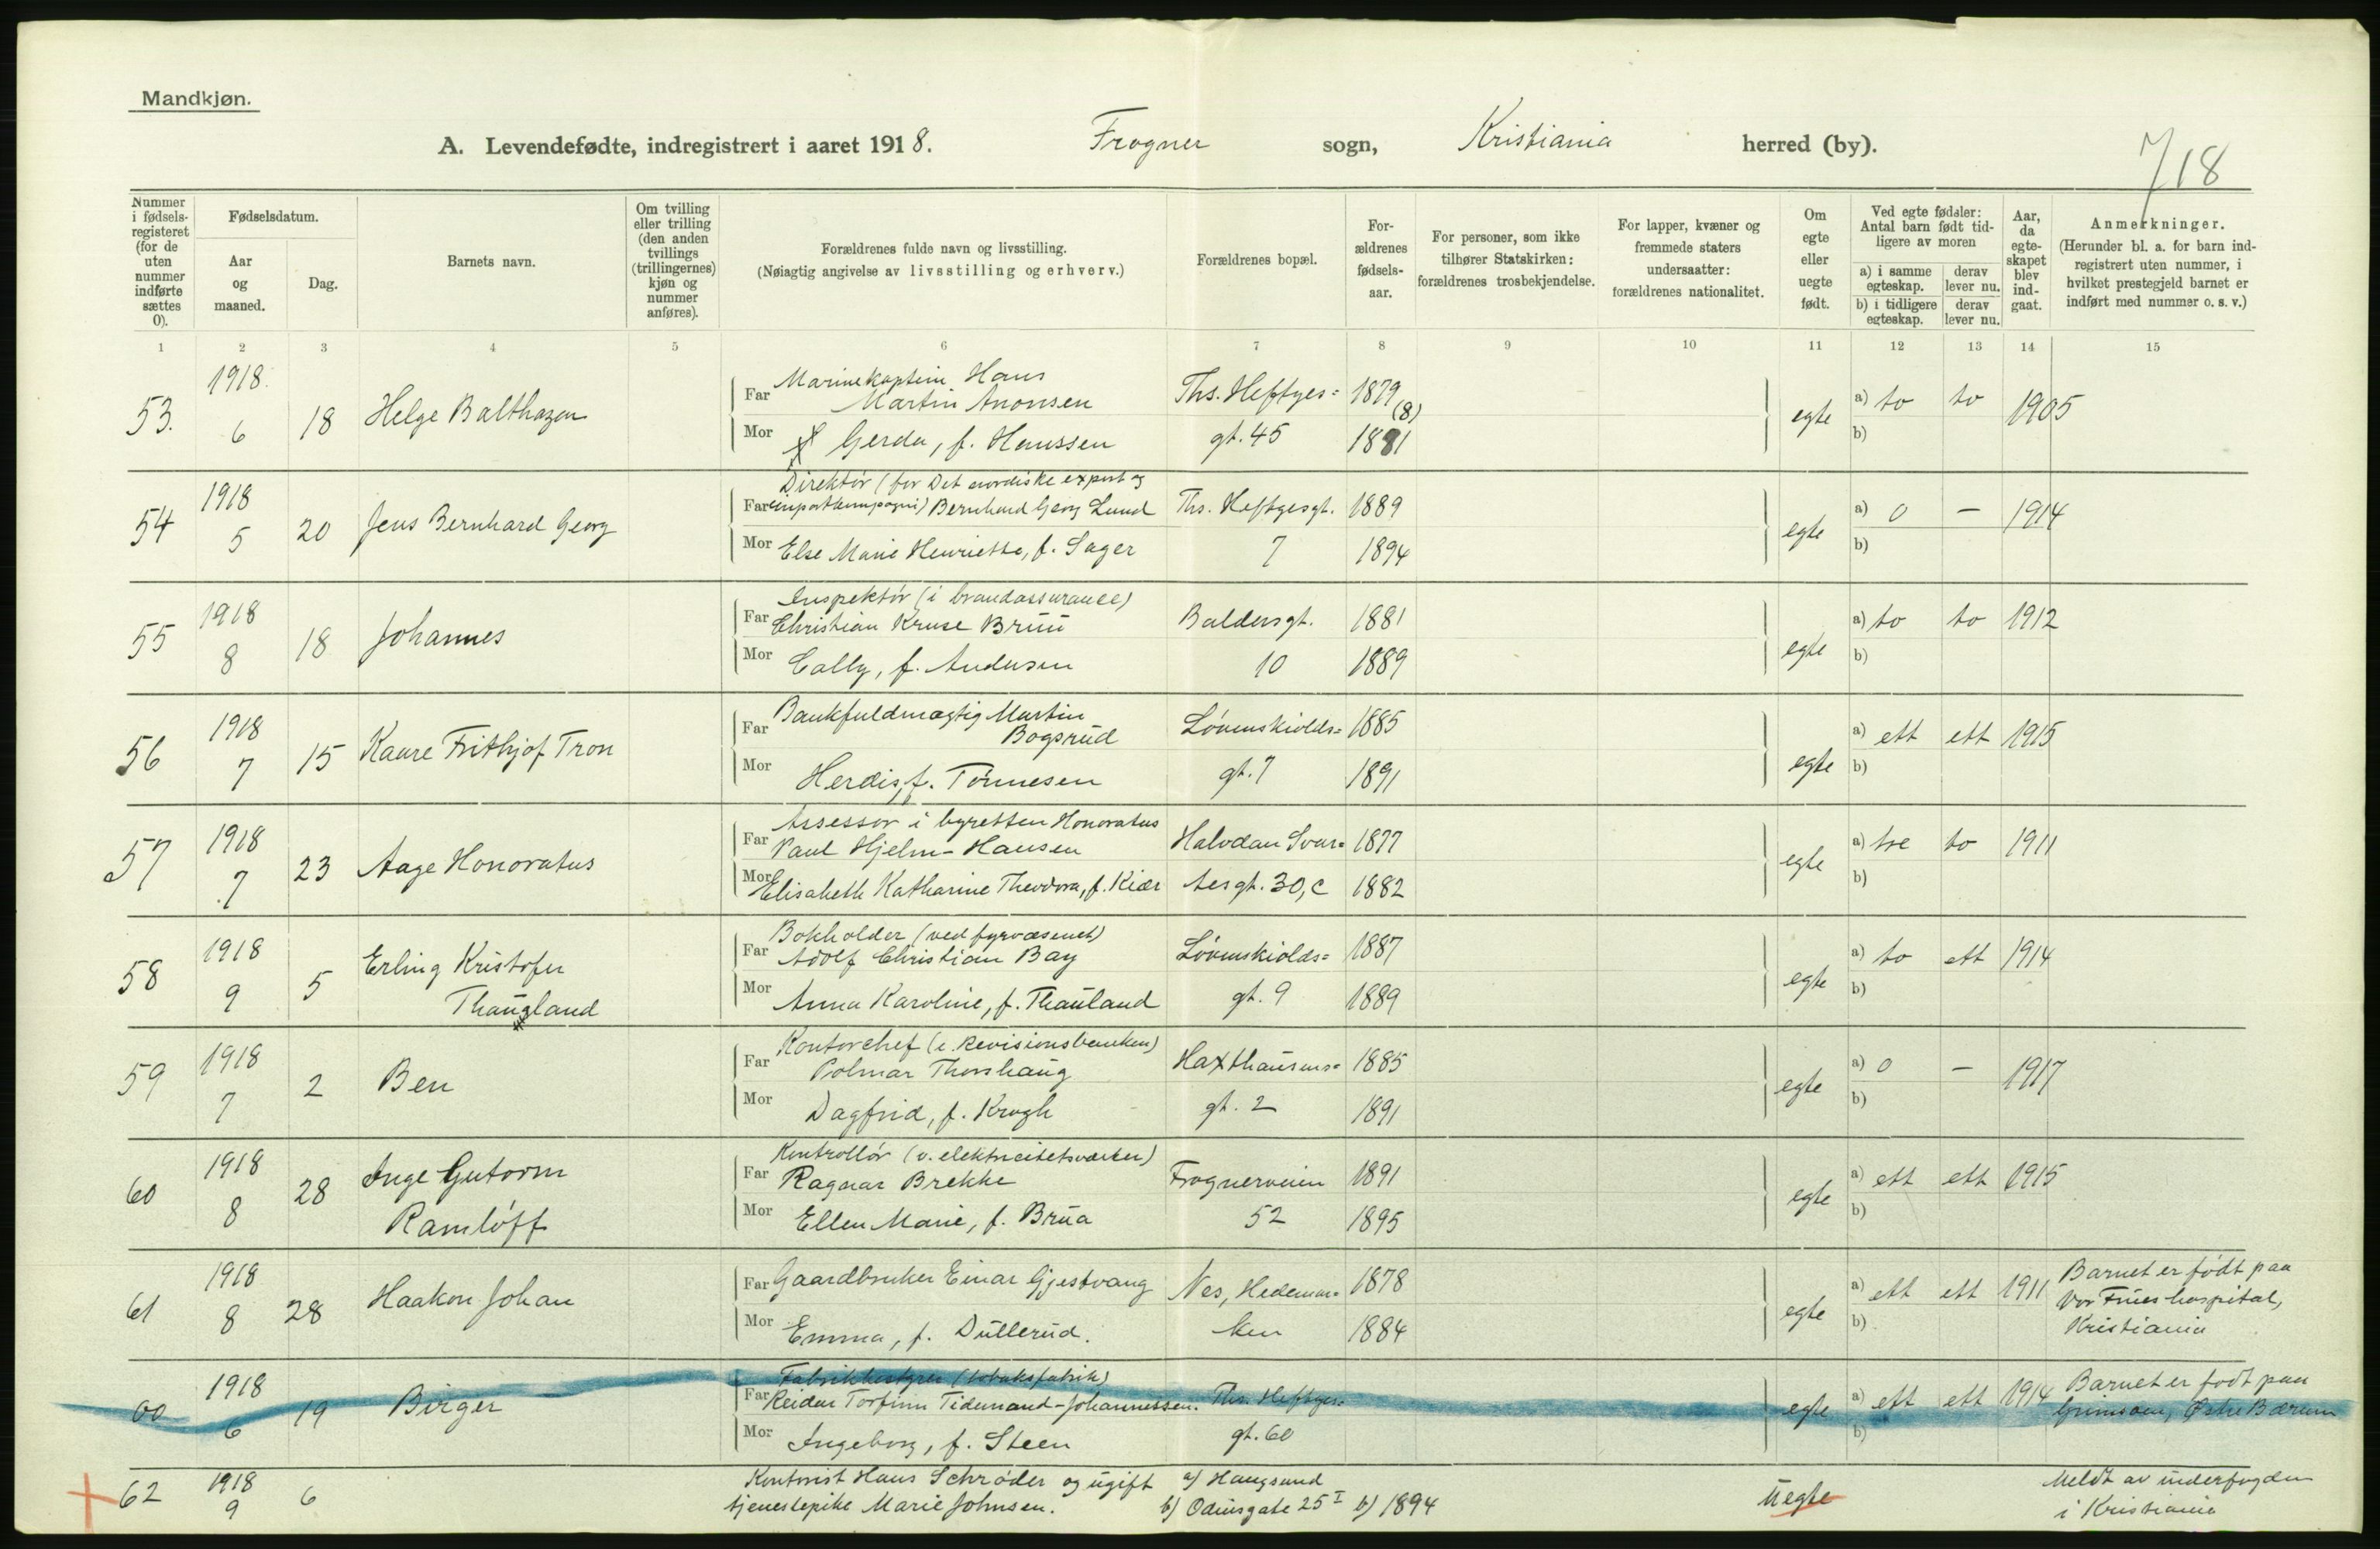 Mandkjøn.
A. Levendefødte, indregistrert i aaret 1918. Frogner sogn, Kristiania herred (by).
7/18
Nummer i fødsels-registeret (for de uten nummer indførte sættes 0).
Fødselsdatum.
Aar og maaned.
Dag.
Barnets navn.
Om tvilling eller trilling (den anden tvillings (trillingernes) kjøn og nummer anføres).
Forældrenes fulde navn og livsstilling.
(Nøiagtig angivelse av livsstilling og erhverv.)
Forældrenes bopæl.
For-ældrenes fødsels-aar.
For personer, som ikke tilhører Statskirken: forældrenes trosbekjendelse.
For lapper, kvæner og fremmede staters undersaatter: forældrenes nationalitet.
Om egte eller uegte født.
Ved egte fødsler: Antal barn født tid-ligere av moren
a) i samme egteskap. derav lever nu.
b) i tidligere egteskap. derav lever nu.
Aar, da egte-skapet blev ind-gaat.
Anmerkninger.
(Herunder bl. a. for barn ind-registrert uten nummer, i hvilket prestegjeld barnet er indført med nummer o. s. v.)
1 2 3 4 5 6 7 8 9 10 11 12 13 14 15
53. 1918. 6 18 Helge Balthazar
Far Marinekaptein Hans Martin Aronsen Ths. Heftyes= 1879
Mor Gerda, f. Hanssen gt. 45 1881 (8)
egte a) to to 1905
b)
54 1918 5 20 Jens Bernhard Georg
Direktør (for Det nordiske export og
Far importkompagni) Bernhard Georg Lund Ths. Heftyesgt. 1889
Mor Else Marie Henriette, f. Sager 7 1894
egte a) 0 – 1914
b)
55 1918 8 18 Johannes
Inspektør (i brandassurance)
Far Christian Kruse Bruu Baldersgt. 1881
Mor Cally, f. Andersen 10 1889
egte a) to to 1912
b)
56 1918 7 15 Kaare Frithjof Tron
Far Bankfuldmægtig Martin Bogsrud Løvenskiolds= 1885
Mor Herdis, f. Tønnesen gt. 7 1891
egte a) ett ett 1915
b)
57 1918 7 23 Aage Honoratus
Assessor i byretten Honoratus
Far Paul Hjelm-Hansen Halvdan Svar= 1877
Mor Elisabeth Katharine Theodora, f. Kiær tesgt. 30, c 1882
egte a) tre to 1911
b)
58 1918 9 5 Erling Kristofer Thaugland
Bokholder (ved fyrvæsenet)
Far Adolf Christian Bay Løvenskiolds= 1887
Mor Anna Karoline, f. Thauland gt. 9 1889
egte a) to ett 1914
b)
59 1918 7 2 Ben
Kontorchef (i Revisionsbanken)
Far Volmar Thorshaug Haxthausens= 1885
Mor Dagfrid, f. Krogh gt. 2 1891
egte a) 0 – 1917
b)
60 1918 8 28 Inge Gutorm Ramløff
Kontrollør (v. elektricitetsværker)
Far Ragnar Brekke Frognerveien 1891
Mor Ellen Marie, f. Brua 52 1895
egte a) ett ett 1915
b)
61 1918 8 28 Haakon Johan
Far Gaardbruker Einar Gjestvang Nes, Hedemar= 1878
Mor Emma, f. Dullerud. ken 1884
egte a) ett ett 1911
b)
Barnet er født paa
Vor Frues hospital,
Kristiania
00 1918 6 19 Birger
Fabrikbestyrer (tobaksfabrik)
Far Reidar Torfinn Tidemand-Johannessen. Ths. Heftyes=
Mor Ingeborg, f. Steen gt. 60
egte a) ett ett 1914
b)
Barnet er født paa
Grimsøen, Østre Bærum
62 1918 9 6
Kontorist Hans Schrøder og ugift a) Haugsund
tjenestepike Marie Johnsen. b) Odinsgate 25 I b) 1894
Uegte
Meldt av underfogden
i Kristiania